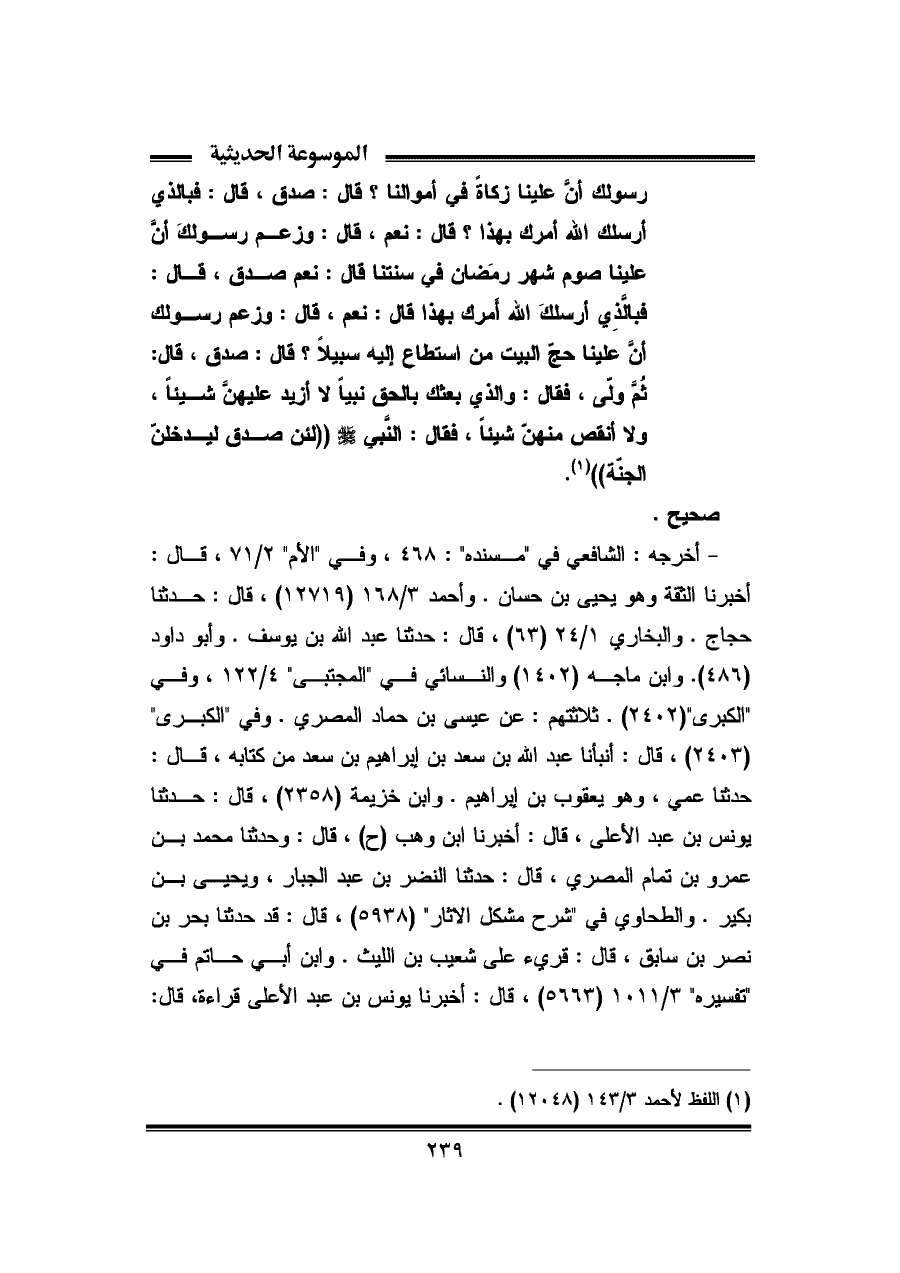 الموسوعة الحديثية
رسولك أنَّ علينا زكاةً في أموالنا ؟ قال : صدق ، قال : فبالذي
أرسلك الله أمرك بهذا ؟ قال : نعم ، قال : وزعـــم رســـولكَ أنَّ
علينا صوم شهر رمَضان في سنتنا قال : نعم صـــدق ، قـــال :
فبالَّذِي أرسلكَ الله أَمرك بهذا قال : نعم ، قال : وزعم رســـولك
أنَّ علينا حجّ البيت من استطاع إليه سبيلاً ؟ قال : صدق ، قال:
ثُمَّ ولّى ، فقال : والذي بعثك بالحق نبياً لا أزيد عليهنَّ شـــيئاً ،
ولا أنقص منهنّ شيئاً ، فقال : النَّبي ﷺ ((لئن صـــدق ليـــدخلنّ
الجنّة))(١).
صحيح .
- أخرجه : الشافعي في "مـــسنده" : ٤٦٨ ، وفـــي "الأم" ٧١/٢ ، قـــال :
أخبرنا الثقة وهو يحيى بن حسان . وأحمد ١٦٨/٣ (١٢٧١٩) ، قال : حـــدثنا
حجاج . والبخاري ٢٤/١ (٦٣) ، قال : حدثنا عبد الله بن يوسف . وأبو داود
(٤٨٦). وابن ماجـــه (١٤٠٢) والنـــسائي فـــي "المجتبـــى" ١٢٢/٤ ، وفـــي
"الكبرى"(٢٤٠٢) . ثلاثتهم : عن عيسى بن حماد المصري . وفي "الكبـــرى"
(٢٤٠٣) ، قال : أنبأنا عبد الله بن سعد بن إبراهيم بن سعد من كتابه ، قـــال :
حدثنا عمي ، وهو يعقوب بن إبراهيم . وابن خزيمة (٢٣٥٨) ، قال : حـــدثنا
يونس بن عبد الأعلى ، قال : أخبرنا ابن وهب (ح) ، قال : وحدثنا محمد بـــن
عمرو بن تمام المصري ، قال : حدثنا النضر بن عبد الجبار ، ويحيـــى بـــن
بكير . والطحاوي في "شرح مشكل الاثار" (٥٩٣٨) ، قال : قد حدثنا بحر بن
نصر بن سابق ، قال : قريء على شعيب بن الليث . وابن أبـــي حـــاتم فـــي
"تفسيره" ١٠١١/٣ (٥٦٦٣) ، قال : أخبرنا يونس بن عبد الأعلى قراءة، قال:
(١) اللفظ لأحمد ١٤٣/٣ (١٢٠٤٨) .
٢٣٩